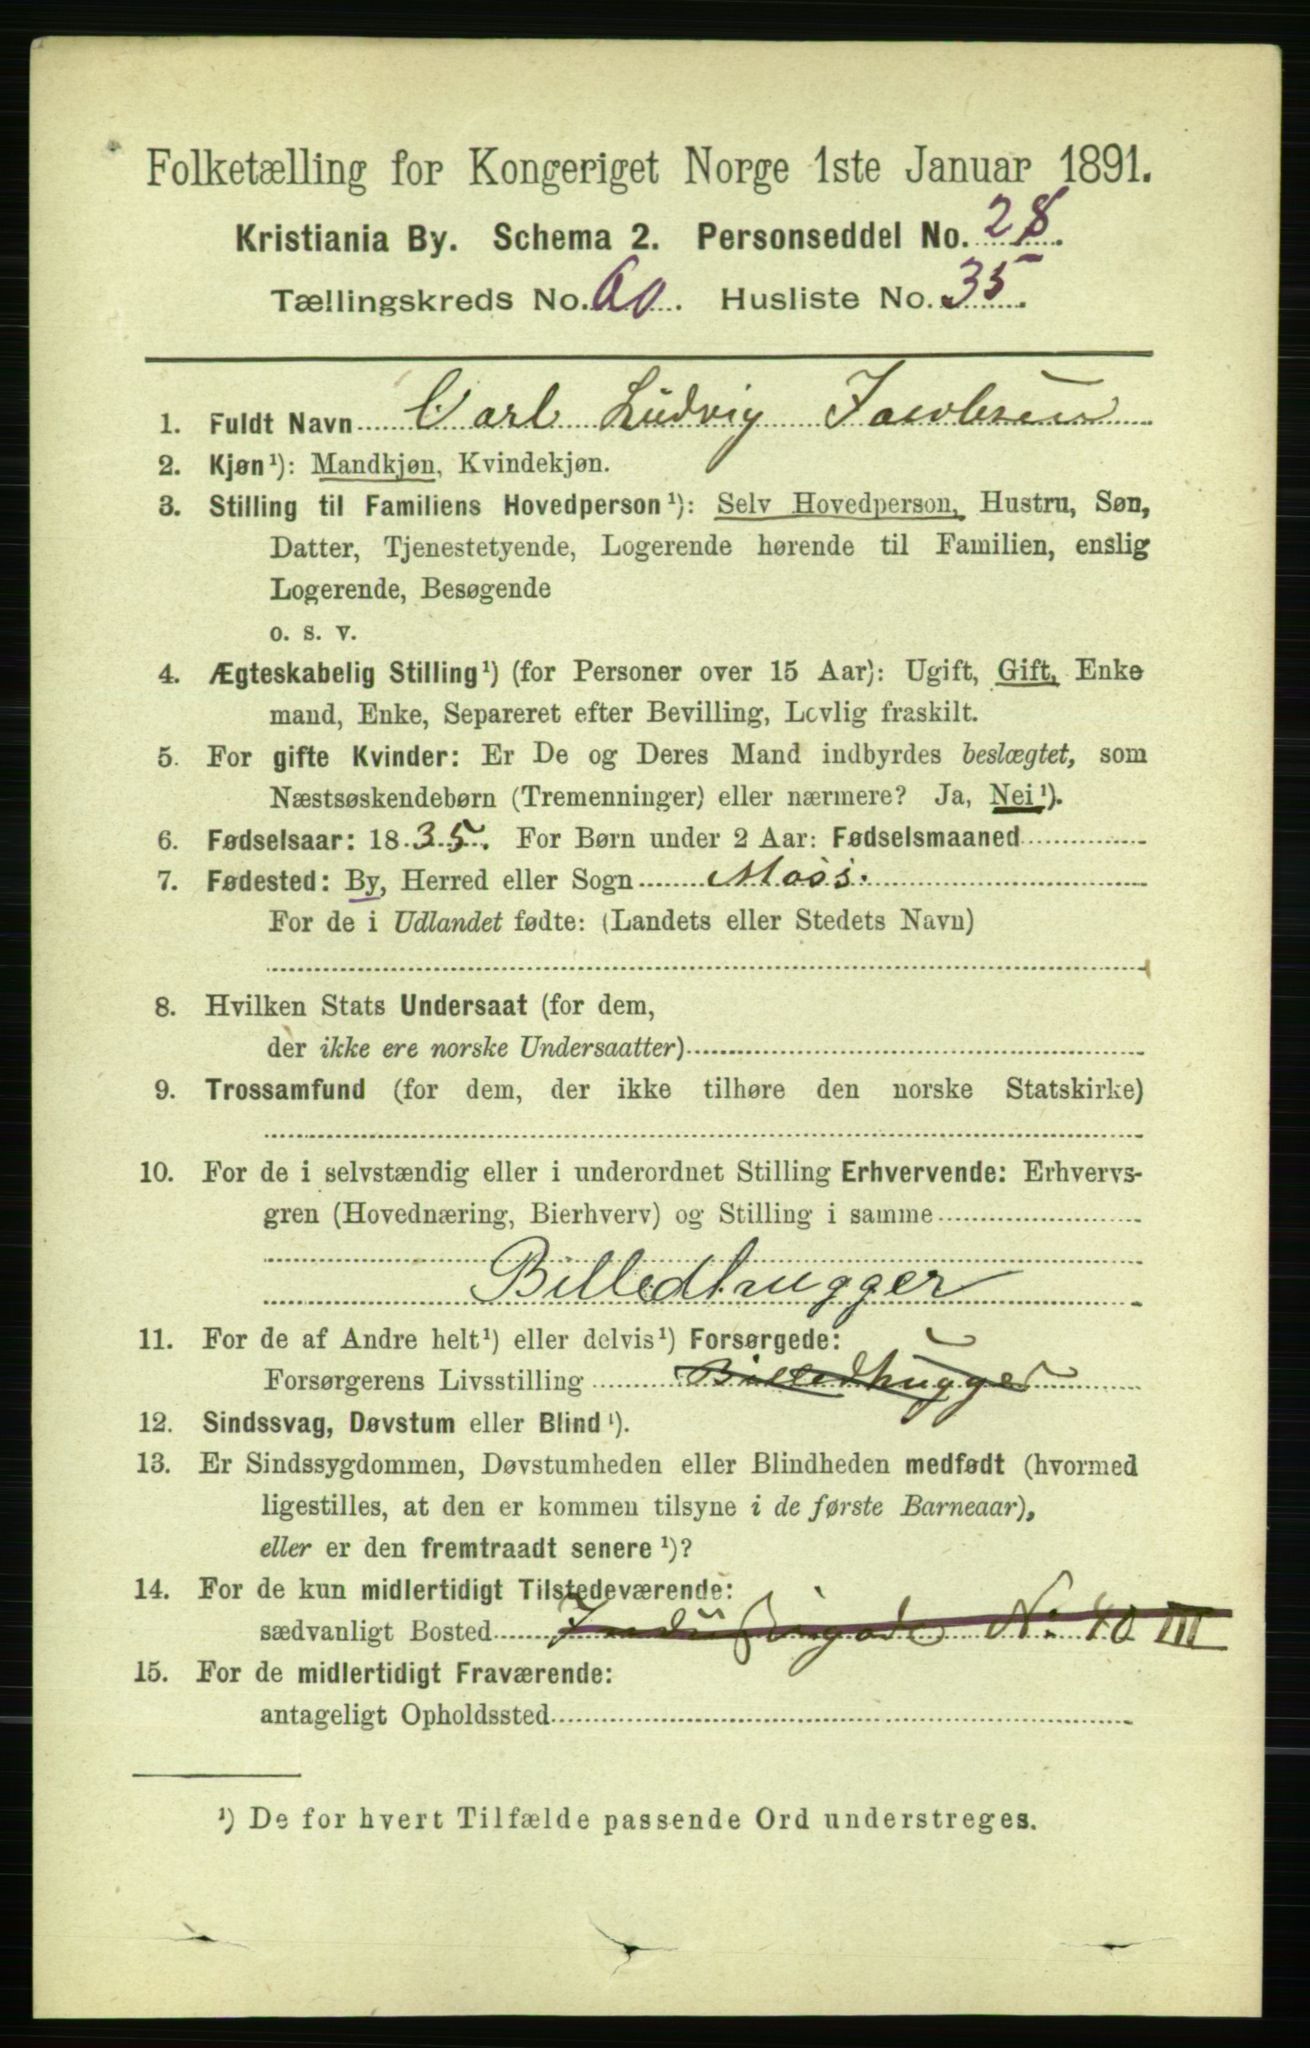 Folketælling for Kongeriget Norge 1ste Januar 1891.
Kristiania By. Schema 2. Personseddel No. 28.
Tællingskreds No. 60. Husliste No. 35.
1. Fuldt Navn Carl Ludvig Jacobsen
2. Kjøn¹): Mandkjøn, Kvindekjøn.
3. Stilling til Familiens Hovedperson¹): Selv Hovedperson, Hustru, Søn,
Datter, Tjenestetyende, Logerende hørende til Familien, enslig
Logerende, Besøgende
o. s. v.
4. Ægteskabelig Stilling¹) (for Personer over 15 Aar): Ugift, Gift, Enke
mand, Enke, Separeret efter Bevilling, Lovlig fraskilt.
5. For gifte Kvinder: Er De og Deres Mand indbyrdes beslægtet, som
Næstsøskendebørn (Tremenninger) eller nærmere? Ja, Nei¹).
6. Fødselsaar: 1835. For Børn under 2 Aar: Fødselsmaaned
7. Fødested: By, Herred eller Sogn Moss.
For de i Udlandet fødte: (Landets eller Stedets Navn)
8. Hvilken Stats Undersaat (for dem,
der ikke ere norske Undersaatter)
9. Trossamfund (for dem, der ikke tilhøre den norske Statskirke)
10. For de i selvstændig eller i underordnet Stilling Erhvervende: Erhvervs-
gren (Hovednæring, Bierhverv) og Stilling i samme
Billedhugger
11. For de af Andre helt¹) eller delvis¹) Forsørgede:
Forsørgerens Livsstilling Billedhugger
12. Sindssvag, Døvstum eller Blind¹).
13. Er Sindssygdommen, Døvstumheden eller Blindheden medfødt (hvormed
ligestilles, at den er kommen tilsyne i de første Barneaar),
eller er den fremtraadt senere¹)?
14. For de kun midlertidigt Tilstedeværende:
sædvanligt Bosted Industrigade No: 40 III
15. For de midlertidigt Fraværende:
antageligt Opholdssted
¹) De for hvert Tilfælde passende Ord understreges.